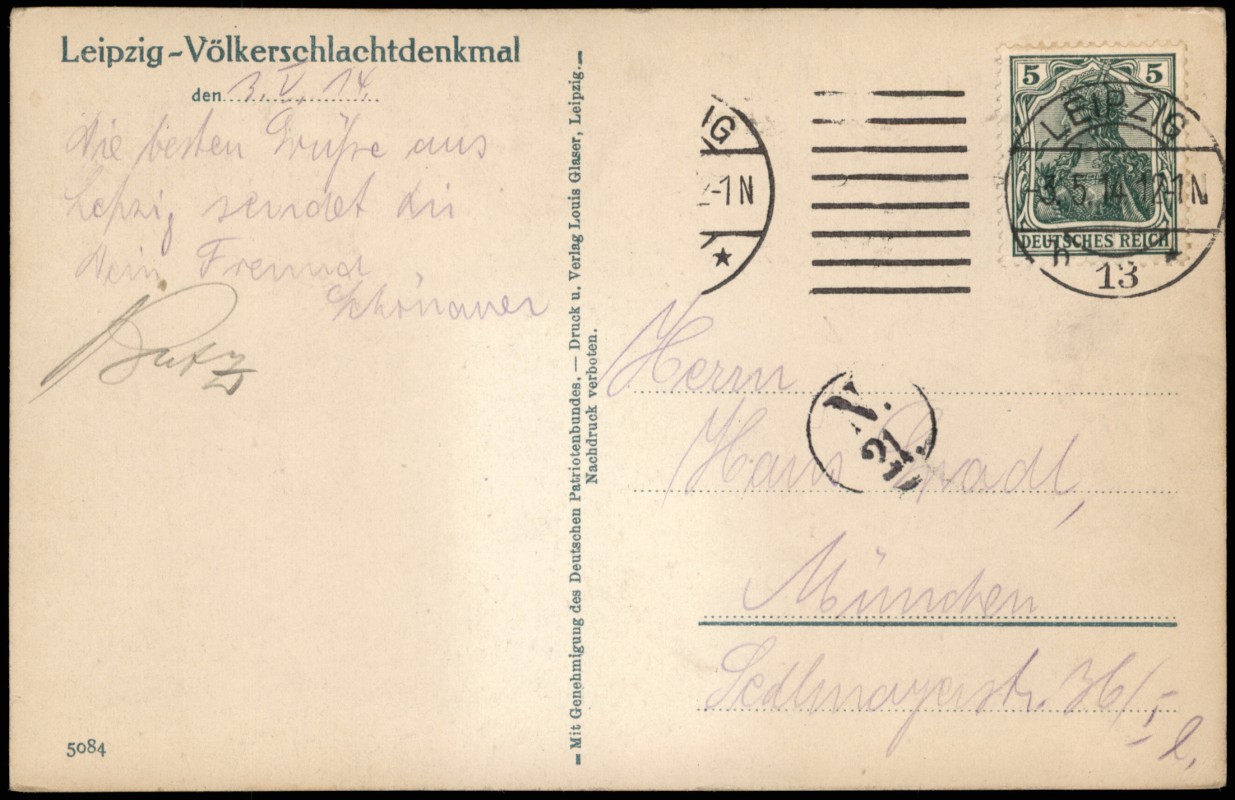 Leipzig-Völkerschlachtdenkmal
den 3. V. 14.
Die besten Grüße aus
Leipzig sendet dir
Dein Freund
Schönauer
IG
2-1N
★
5 5
LEIPZIG
-3.5.14.12-1N
DEUTSCHES REICH
13
Mit Genehmigung des Deutschen Patriotenbundes. — Druck u. Verlag Louis Glaser, Leipzig.
Nachdruck verboten.
Herrn
N.
21.
Hans Gradl,
München
Sedlmayerstr. 36/
5084